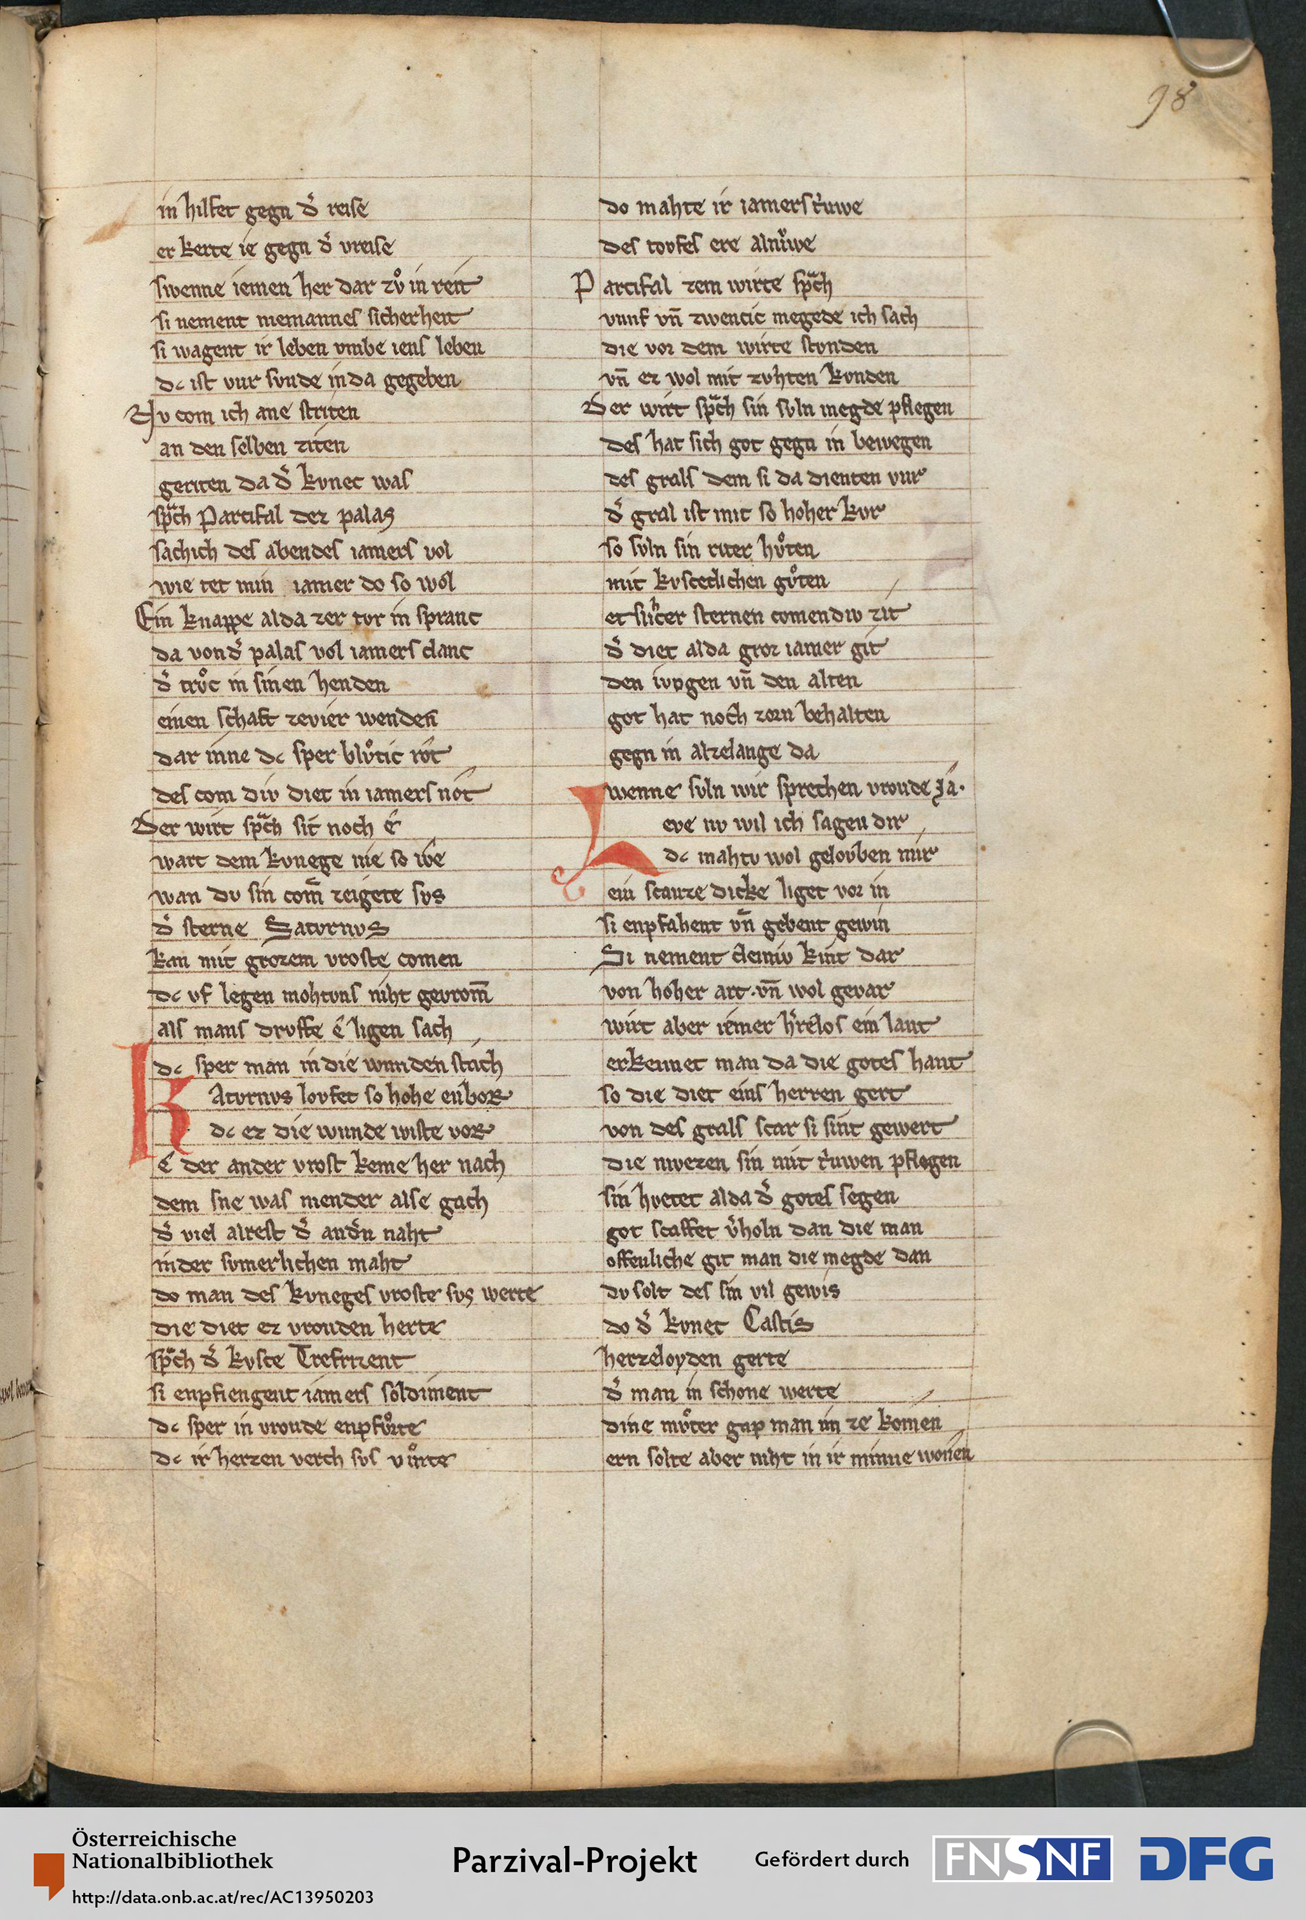 98
in hilfet gegn d͛ reise
er kerte ie gegn d͛ vreise
swenne iemen her dar zvͦ in reit
si nement niemannes sicherheit
si wagent ir leben vmbe iens leben
dc ist vur svnde in da gegeben
Nv com ich ane striten
an den selben ziten
geriten da d͛ kvnec was
sp̄ch Parcifal dez palas
sach ich des abendes iamers vol
wie tet min iamer do so wol
Ein knappe alda zer tvr in spranc
da von d͛ palas vol iamers clanc
d͛ trvͦc in sinen henden
einen schaft ze vier wenden
dar inne dc sper blvͦtic rot
des com div diet in iamers not
Der wirt sp̄ch sit noch é
wart dem kvnege nie so we
wan dv sin com̄ zeigete svs
d͛ sterne Satvrnvs
kan mit grozem vroste comen
dc vf legen mohtvns niht gevrom̄
als mans drvffe é ligen sach
dc sper man in die wunden stach
Atvrnvs lovfet so hohe enbor
dc ez die wunde wiste vor
é der ander vrost keme her nach
dem sne was niender alse gach
d͛ viel alrest d͛ and͛n naht
in der svmerlichen maht
do man des kvneges vroste svs werte
die diet ez vrouden herte
sp̄ch d͛ kvsce Trefrizent
si enpfiengent iamers soldiment
dc sper in vroude enpfvͦrte
dc ir herzen verch svs rvͦrte
do mahte ir iamers t͛uwe
des tovfes ere al nuwe
Parcifal zem wirte sp̄ch
vunf vn̄ zwencic megede ich sach
die vor dem wirte stvnden
vn̄ ez wol mit zvhten kvnden
Der wirt sp̄ch sin svln megde pflegen
des hat sich got gegn in bewegen
des grals dem si da dienten vur
d͛ gral ist mit so hoher kvr
so svln sin riter hvͦten
mit kvscetlichen gvͦten
d͛ diet alda groz iamer git
den ivngen vn̄ den alten
got hat noch zorn behalten
gegn in alze lange da
wenne svln wir sprechen vroude ja.
eve nv wil ich sagen dir
dc mahtv wol gelovben mir
ein scanze dicke liget vor in
si enpfahent vn̄ gebent gewin
Si nement cleiniv kint dar
von hoher art . vn̄ wol gevar
wirt aber iemer h͛relos ein lant
erkennet man da die gotes hant
so die diet eins herren gert
von des grals scar si sint gewert
die mvezen sin mit t͛uwen pflegen
sin hvetet alda d͛ gotes segen
got scaffet v͛holn dan die man
offenliche git man die megde dan
dv solt des sin vil gewis
do d͛ kvnec Castis
herzeloyden gerte
d͛ man in schone werte
dine mvͦter gap man im ze komen
ern solte aber niht in ir minne wonen
Österreichische
Nationalbibliothek
http://data.onb.ac.at/rec/AC13950203
Parzival-Projekt
Gefördert durch
FNSNF
DFG